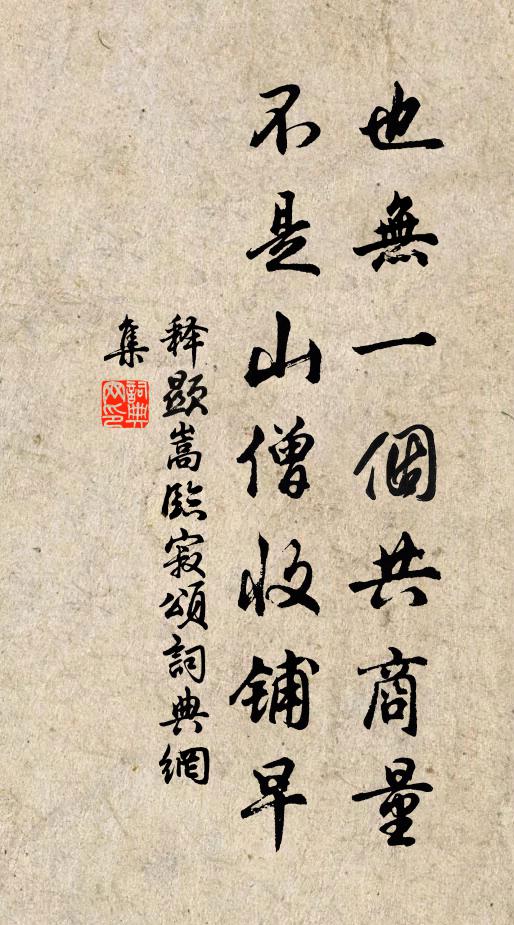 也無一個共商量
不是山僧收鋪早
释顯嵩臨寂頌詞典網
集
詞典网印